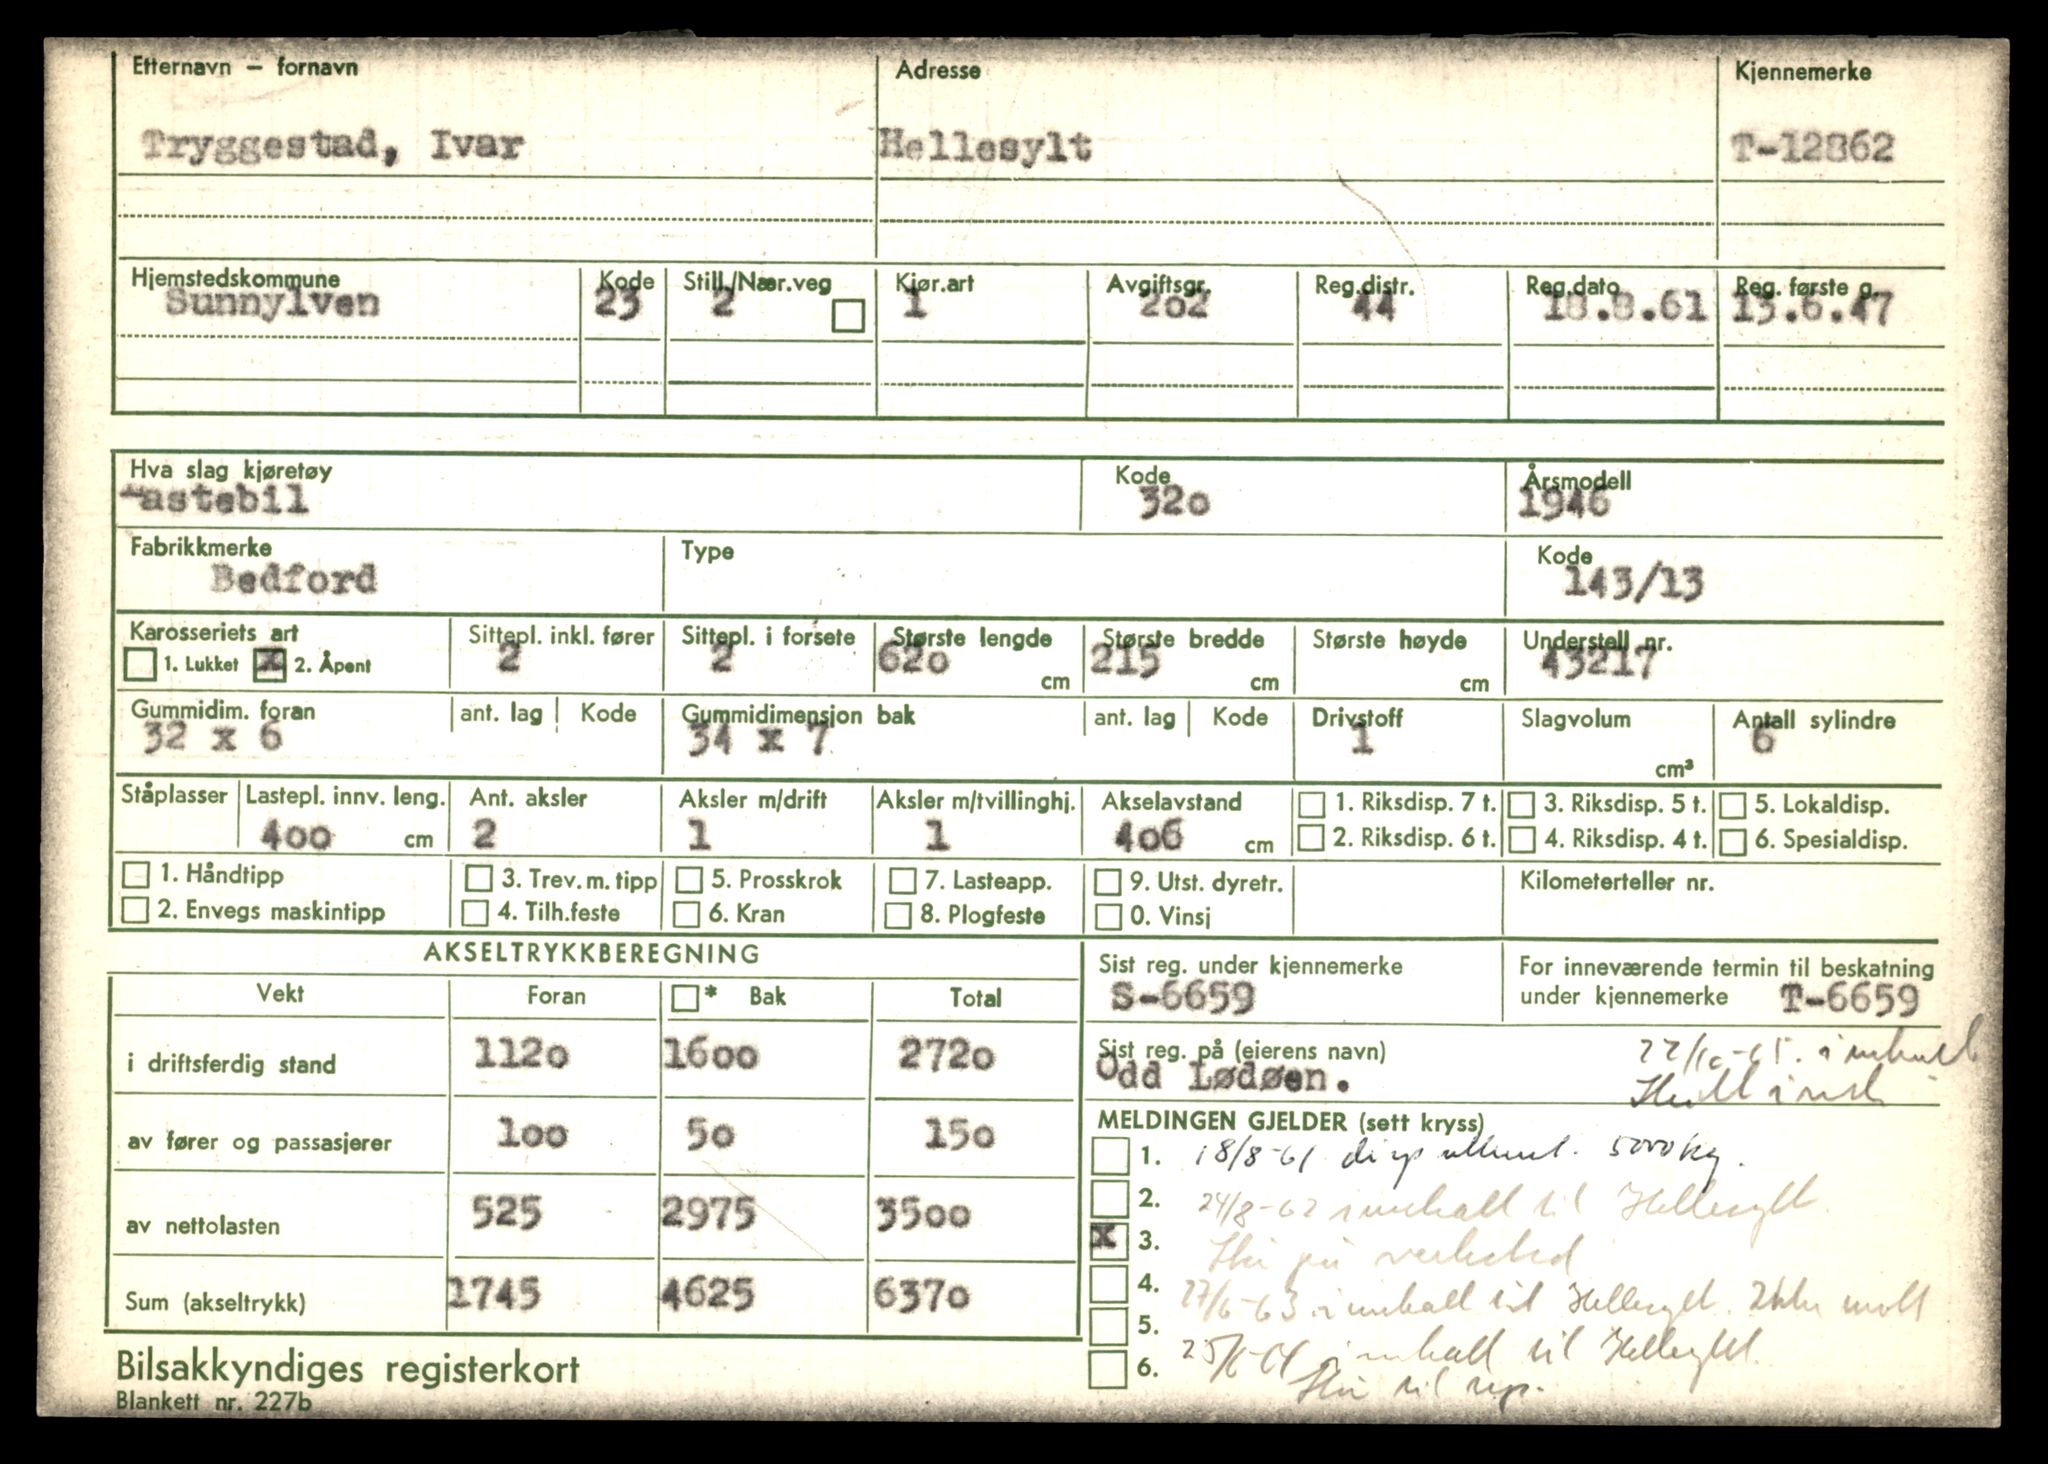 Etternavn – fornavn Adresse Kjennemerke
Tryggestad, Ivar Hellesylt T-12862
Hjemstedskommune Kode Still./Nær.veg Kjør.art Avgiftsgr. Reg.distr. Reg.dato Reg. første g.
Sunnylven 23 2 1 202 44 18.8.61 13.6.47
Hva slag kjøretøy Kode Årsmodell
Lastebil 320 1946
Fabrikkmerke Type Kode
Bedford 143/13
Karosseriets art Sittepl. inkl. fører Sittepl. i forsete Største lengde Største bredde Største høyde Understell nr.
1. Lukket x 2. Åpent 2 2 620 cm 215 cm cm 43217
Gummidim. foran ant. lag Kode Gummidimensjon bak ant. lag Kode Drivstoff Slagvolum Antall sylindre
32 x 6 34 x 7 1 cm³ 6
Ståplasser Lastepl. innv. leng. Ant. aksler Aksler m/drift Aksler m/tvillinghj. Akselavstand 1. Riksdisp. 7 t. 3. Riksdisp. 5 t. 5. Lokaldisp.
400 cm 2 1 1 406 cm 2. Riksdisp. 6 t. 4. Riksdisp. 4 t. 6. Spesialdisp.
1. Håndtipp 3. Trev. m. tipp 5. Prosskrok 7. Lasteapp. 9. Utst. dyretr. Kilometerteller nr.
2. Envegs maskintipp 4. Tilh.feste 6. Kran 8. Plogfeste 0. Vinsj
AKSELTRYKKBEREGNING
Vekt Foran * Bak Total
i driftsferdig stand 1120 1600 2720
av fører og passasjerer 100 50 150
av nettolasten 525 2975 3500
Sum (akseltrykk) 1745 4625 6370
Bilsakkyndiges registerkort
Blankett nr. 227b
Sist reg. under kjennemerke For inneværende termin til beskatning
S-6659 under kjennemerke T-6659
Sist reg. på (eierens navn)
Odd Lødøen.
22/10-65.
MELDINGEN GJELDER (sett kryss)
1. 18/8-61 disp 5000 kg.
2. 24/8-62 innkalt til Hellesylt.
x 3. på verksted
4. 27/6-63 innkalt til Hellesylt. Ikke møtt
5.
6. 25/6-64 innkalt til Hellesylt.
til rep.